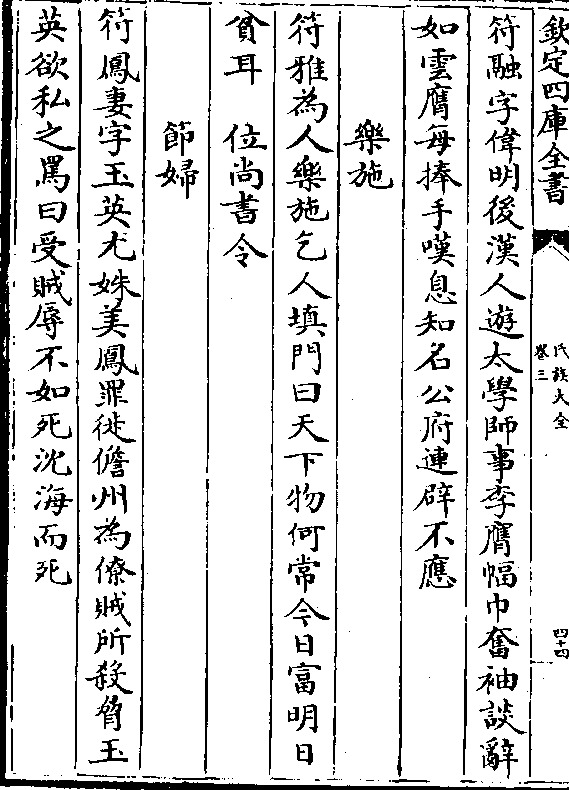 欽定四庫全書
氏族大全
卷三
四十四
符融字偉明後漢人遊太學師事李膺幅巾奮袖談辭
如雲膺每捧手嘆息知名公府連辟不應
樂施
符雅為人樂施乞人填門曰天下物何常今日富明日
貧耳　位尚書令
節婦
符鳳妻字玉英尤姝美鳳罪徙儋州為獠賊所殺脅玉
英欲私之罵曰受賊辱不如死沈海而死